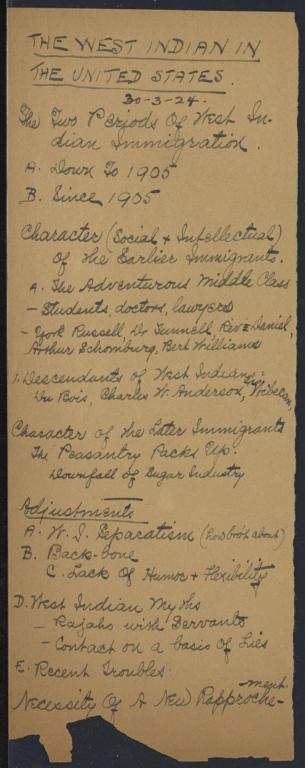 THE WEST INDIAN IN
THE UNITED STATES.
30-3-24.
The Two Periods Of West In-
dian Immigration.
A. Down To 1905
B. Since 1905
Character (Social + Intellectual)
Of the Earlier Immigrants.
A. The Adventurous Middle Class
- Students, doctors, lawyers
- York Russell, Dr Tunnell, Revd Daniel,
Arthur Schomburg, Bert Williams
1. Descendants of West Indians:
Du Bois, Charles W. Anderson, Wibecan,
Character of the Later Immigrants
The Peasantry Packs Up.
Downfall of Sugar Industry
Adjustments
A. W. I. Separatism (how bro't about)
B. Back-bone
C. Lack Of Humor + Flexibility
D. West Indian Myths
- Rajahs with Servants
- Contact on a basis of Lies
E. Recent Troubles
Necessity Of A New Rapproche-
ment.